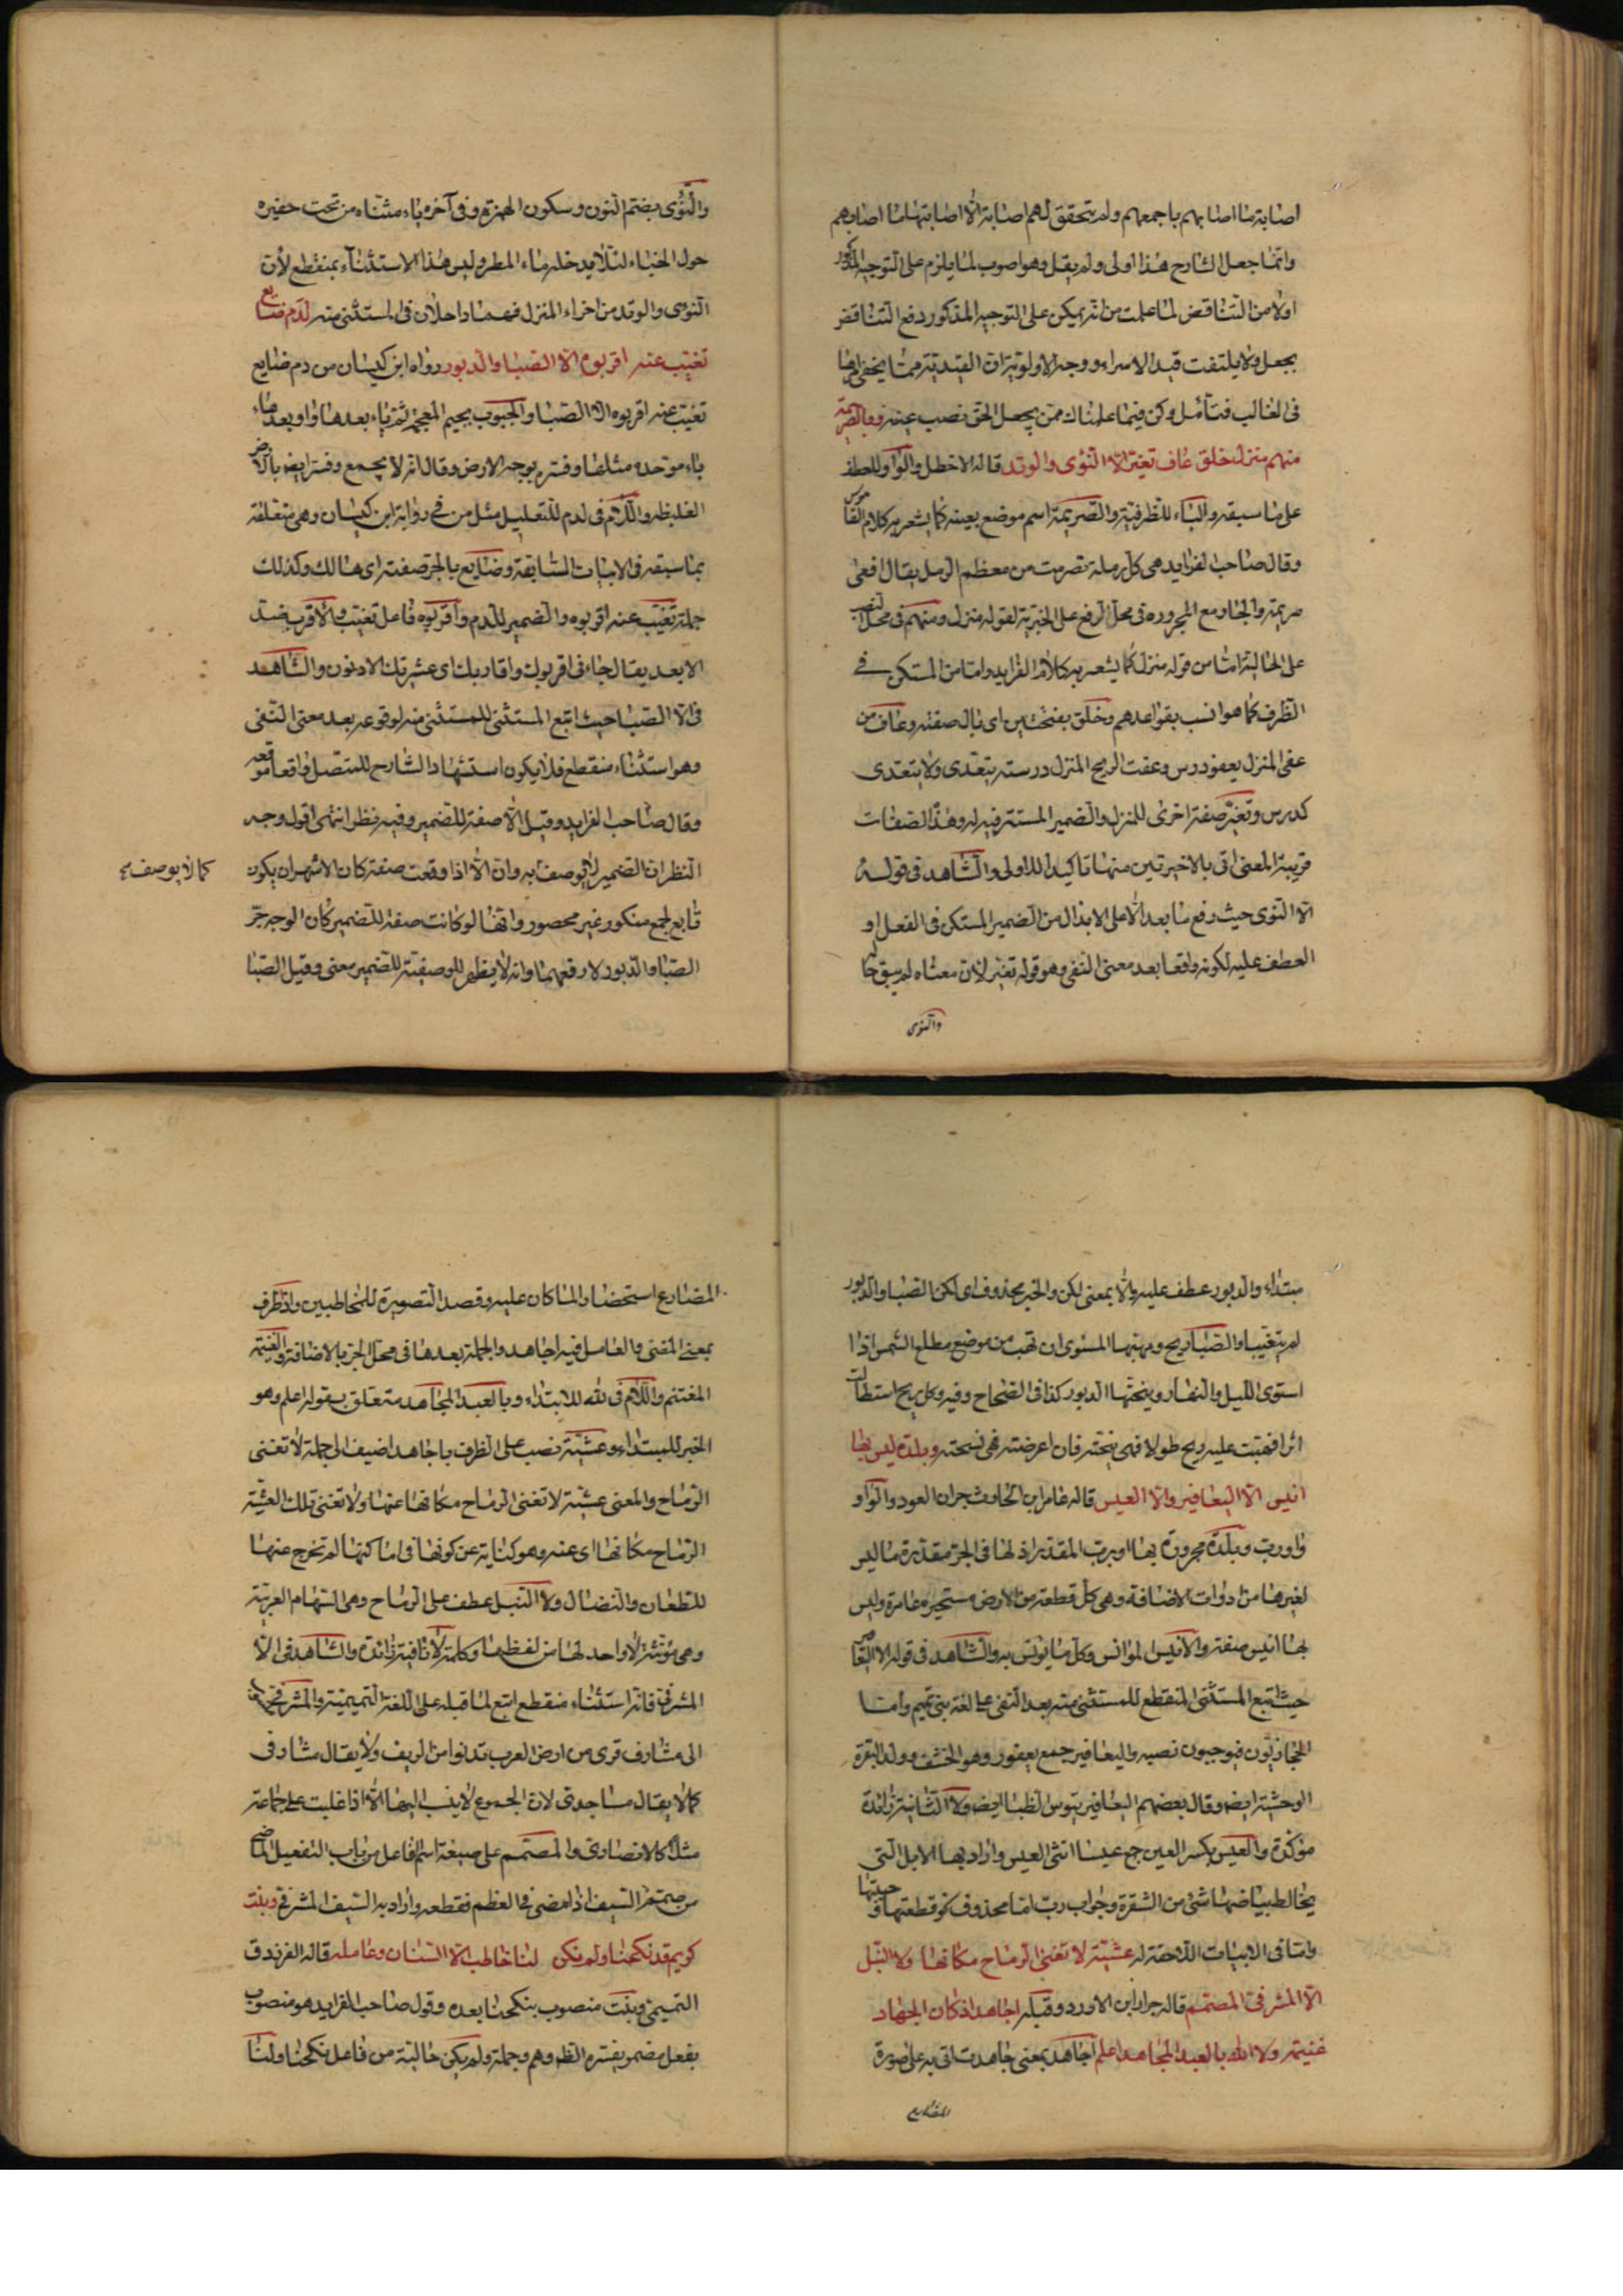 اصابة ما اصابهم باجمعهم ولم يتحقق لهم اصابة الا اصابتها ما اصابهم
وانما جعل الشارح هذا اولى ولم يقل وهو اصوب لما يلزم على التوجيه المذكور
اولا من التناقض لما علمت من انه يمكن على التوجيه المذكور دفع التناقض
بجعل ولا يلتفت قيد الاسراء ووجه الاولوية ان القيدية مما يخفى
فى الغالب فتأمل وكن فيما علمناك ممن يجعل الحق نصب عينه وبالصريمة
منهم منزل خلق عاف تغير الا النؤى والوتد قاله الاخطل والواو للعطف
على ما سبقه والباء للظرفية والصريمة اسم موضع بعينه كما يشعر به كلام القاموس
وقال صاحب الفرايد هى كل رملة تصرمت من معظم الرمل يقال افعى
صريمة والجار مع المجرور فى محل الرفع على الخبرية لقوله منزل ومنهم فى محل النصب
على الحالية اما من قوله منزل كما يشعر به كلام الفرايد واما من المستكن فى
الظرف كما هو انسب بقواعدهم وخلق بفتحتين اى بال صفته وعاف من
عفى المنزل يعفو درس وعفت الريح المنزل درسته يتعدى ولا يتعدى
كدرس وتغير صفة اخرى للمنزل والضمير المستتر فيه له وهذه الصفات
قريبة المعنى اتى بالاخيرتين منها تاكيدا للاولى والشاهد فى قوله
الا النؤى حيث رفع ما بعد الا على الابدال من الضمير المستكن فى الفعل او
العطف عليه لكونه واقعا بعد معنى النفى وهو قوله تغير لان معناه لم يبق حاله
والنؤى
والنؤى بضم النون وسكون الهمزة وفى آخره ياء مثناه من تحت حفيره
حول الخباء لئلا يدخله ماء المطر وليس هذا الاستثناء بمنقطع لأن
النؤى والوتد من اجزاء المنزل فهما داخلان فى المستثنى منه لدم ضايع
تغيب عنه اقربوه الا الصبا والدبور رواه ابن كيسان من دم ضايع
تغيب عنه اقربوه الا الصبا والجبوب بجيم المعجمة ثم باء بعدها واو بعدها
باء موحده مثلها وفسره بوجه الارض وقال انه لا يجمع وفسر ايضا بالارض
الغليظه واللام فى لدم للتعليل مثل من فى رواية ابن كيسان وهى متعلقة
بما سبقه فى الابيات السابقة وضايع بالجر صفته اى هالك وكذلك
جملة تغيب عنه اقربوه والضمير للدم واقربوه فاعل تغيب والاقرب ضد
الابعد يقال جاءنى اقربوك واقاربك اى عشيرتك الادنون والشاهد
فى الا الصبا حيث اتبع المستثنى للمستثنى منه لوقوعه بعد معنى النفى
وهو استثناء منقطع فلا يكون استشهاد الشارح للمتصل واقعا موقعه
وقال صاحب الفرايد وقيل الا صفة للضمير وفيه نظر انتهى اقول وجه
النظر ان الضمير لا يوصف به وان الا اذا وقعت صفة كان الاشهر ان يكون
كما لا يوصف صح
تابع لجمع منكور غير محصور وانها لو كانت صفة للضمير كان الوجه جر
الصبا والدبور لا رفعهما وانه لا يظهر للوصفية للضمير معنى وقيل الصبا
مبتداء والدبور عطف عليه والا بمعنى لكن والخبر محذوف اى لكن الصبا والدبور
لم يتغيبا والصبا ريح ومهبها المستوى ان تهب من موضع مطلع الشمس اذا
استوى الليل والنهار ونيحتها الدبور كذا فى الصحاح وفيه وكل ريح استطالت
اثرا فهبت عليه ريح طولا فهى نيحته فان اعرضته فهى نسيجته وبلدة ليس بها
انيس الا اليعافير والا العيس قاله عامر ابن الحارث جران العود والواو
واو رب وبلدة مجرورة بها او برب المقدر اذ لها فى الجر مقدرة ما ليس
لغيرها من ذوات الاضافة وهى كل قطعة من الارض مستحيزه عامرة وليس
بها انيس صفته والانيس الموانس وكل ما يونس به والشاهد فى قوله الا اليعافير
حيث اتبع المستثنى المنقطع للمستثنى منه بعد النفى على لغة بنى تميم واما
الحجازيون فيوجبون نصبه واليعافير جمع يعفور وهو الخشف وولد البقرة
الوحشية ايضا وقال بعضهم اليعافير تيوس الظباء ايضا ولا الثانية زائدة
مؤكدة والعيس بكسر العين جمع عيسا انثى العيس واراد بها الابل التى
يخالط بياضها شئ من الشقرة وجواب رب اما محذوف نحو قطعتها وجبتها
واما فى الابيات اللاحقة له عشية لا تغنى الرماح مكانها ولا النبل
الا المشرفى المصمم قاله ضرار ابن الازور وقبله اجاهد اذ كان الجهاد
غنيمة ولله بالعبد المجاهد اعلم اجاهد بمعنى جاهدت اتى به على صورة
المضارع
المضارع استحضارا لما كان عليه وقصد التصويره للمخاطبين واذ ظرف
بمعنى المضى والعامل فيه اجاهد والجملة بعدها فى محل الجر بالاضافة والغنيمة
المغتنم واللام فى لله للابتداء وبالعبد المجاهد متعلق بقوله اعلم وهو
الخبر للمبتداء وعشية نصب على الظرف باجاهد اضيف الى جملة لا تغنى
الرماح والمعنى عشية لا تغنى الرماح مكانها عنها ولا تغنى تلك العشية
الرماح مكانها اى عنه وهو كناية عن كونها فى اماكنها لم تخرج عنها
للطعان والنضال ولا النبل عطف على الرماح وهى السهام العربية
وهى مؤنثة لا واحد لها من لفظها وكلمة لا نافية زائدة والشاهد فى الا
المشرفى فانه استثناء منقطع اتبع لما قبله على اللغة التميمية والمشرفى
الى مشارف قرى من ارض العرب تدنوا من الريف ولا يقال مشارفى
كما لا يقال مساجدى لان الجموع لا ينسب اليها الا اذا غلبت على جماعة
مثل كالانصارى والمصمم على صيغة اسم فاعل من باب التفعيل الماضى
من صمم السيف اذا مضى فى العظم فقطعه واراد به السيف المشرفى وبنت
كريم قد نكحنا ولم يكن لنا خاطب الا السنان وعامله قاله الفرزدق
التميمى وبنت منصوب بنكحنا بعده وقول صاحب الفرايد هو منصوب
بفعل مضمر يفسره الظم وهم وجملة ولم يكن حالية من فاعل نكحنا ولنا